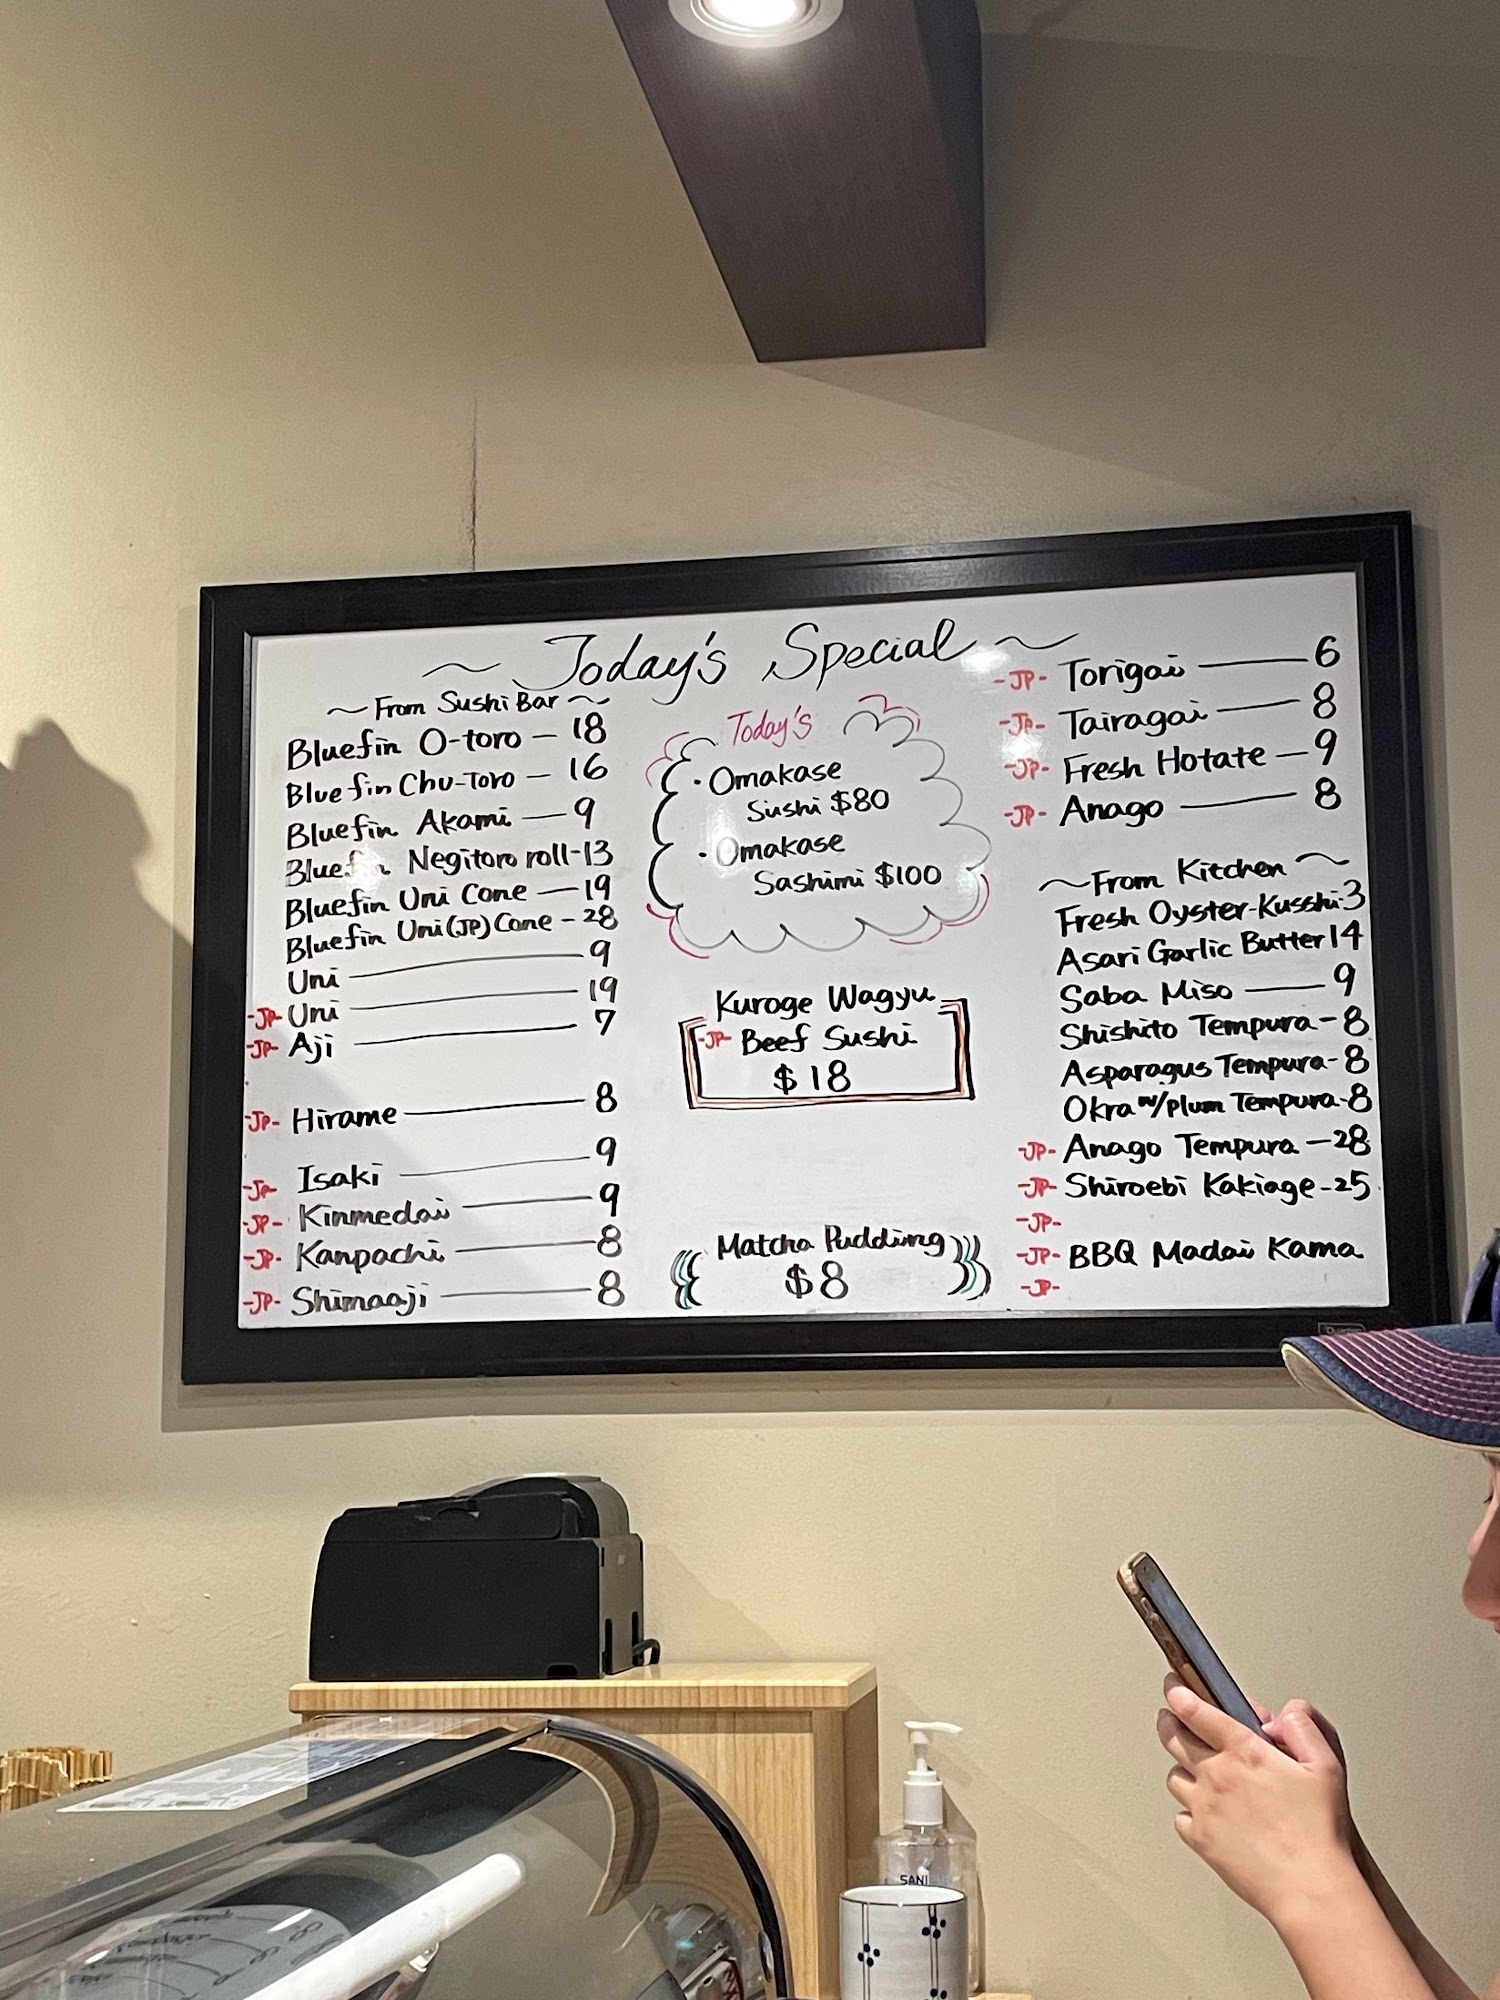 ~ Today's Special ~
~ From Sushi Bar ~
Bluefin O-toro — 18
Bluefin Chu-Toro — 16
Bluefin Akami — 9
Bluefin Negitoro roll-13
Bluefin Uni Cone — 19
Bluefin Uni (JP) Cone - 28
Uni — 9
-JP- Uni — 19
-JP- Aji — 7
-JP- Hirame — 8
-JP- Isaki — 9
-JP- Kinmedai — 9
-JP- Kanpachi — 8
-JP- Shimaaji — 8
Today's
· Omakase
Sushi $80
· Omakase
Sashimi $100
Kuroge Wagyu
-JP- Beef Sushi
$18
Matcha Pudding
$8
-JP- Torigai — 6
-JP- Tairagai — 8
-JP- Fresh Hotate — 9
-JP- Anago — 8
~ From Kitchen ~
Fresh Oyster-Kusshi-3
Asari Garlic Butter 14
Saba Miso — 9
Shishito Tempura - 8
Asparagus Tempura - 8
Okra w/plum Tempura-8
-JP- Anago Tempura — 28
-JP- Shiroebi Kakiage - 25
-JP-
-JP- BBQ Madai Kama
-JP-
SANI